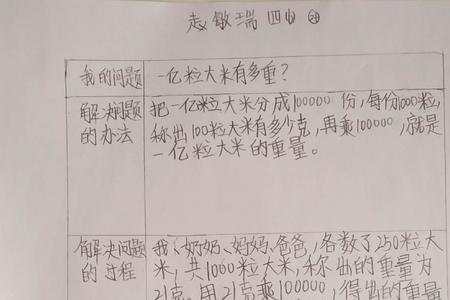 志敏瑞 四(1) 28
我的问题 一亿粒大米有多重?
解决问题 把一亿粒大米分成100000份,每份1000粒,
的办法 称出100粒大米有多少克,再乘100000,就是
一亿粒大米的重量。
解决问题 我、奶奶、妈妈、爸爸,各数了250粒大
的过程 米,共1000粒大米,称出的重量为
21克。用21克乘100000,得出的重量